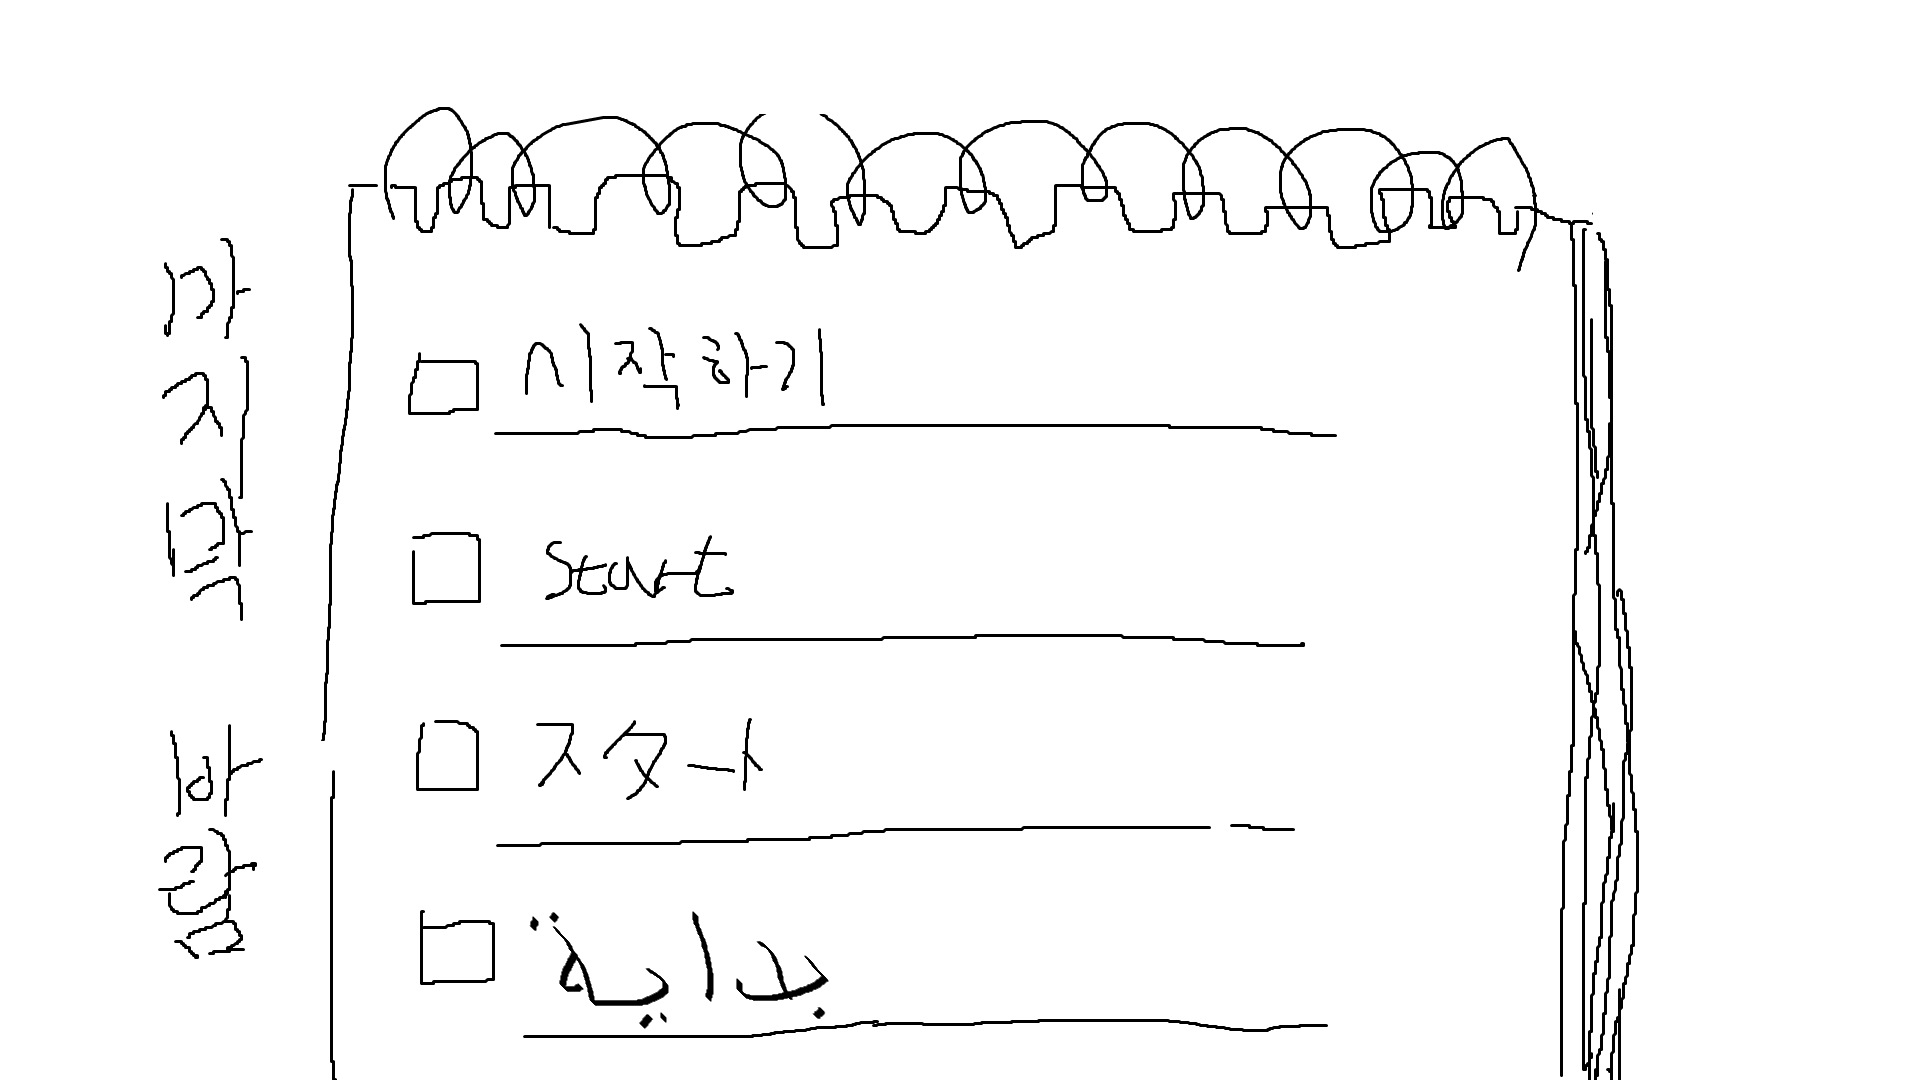 마지막 바람
시작하기
start
スタート
بداية